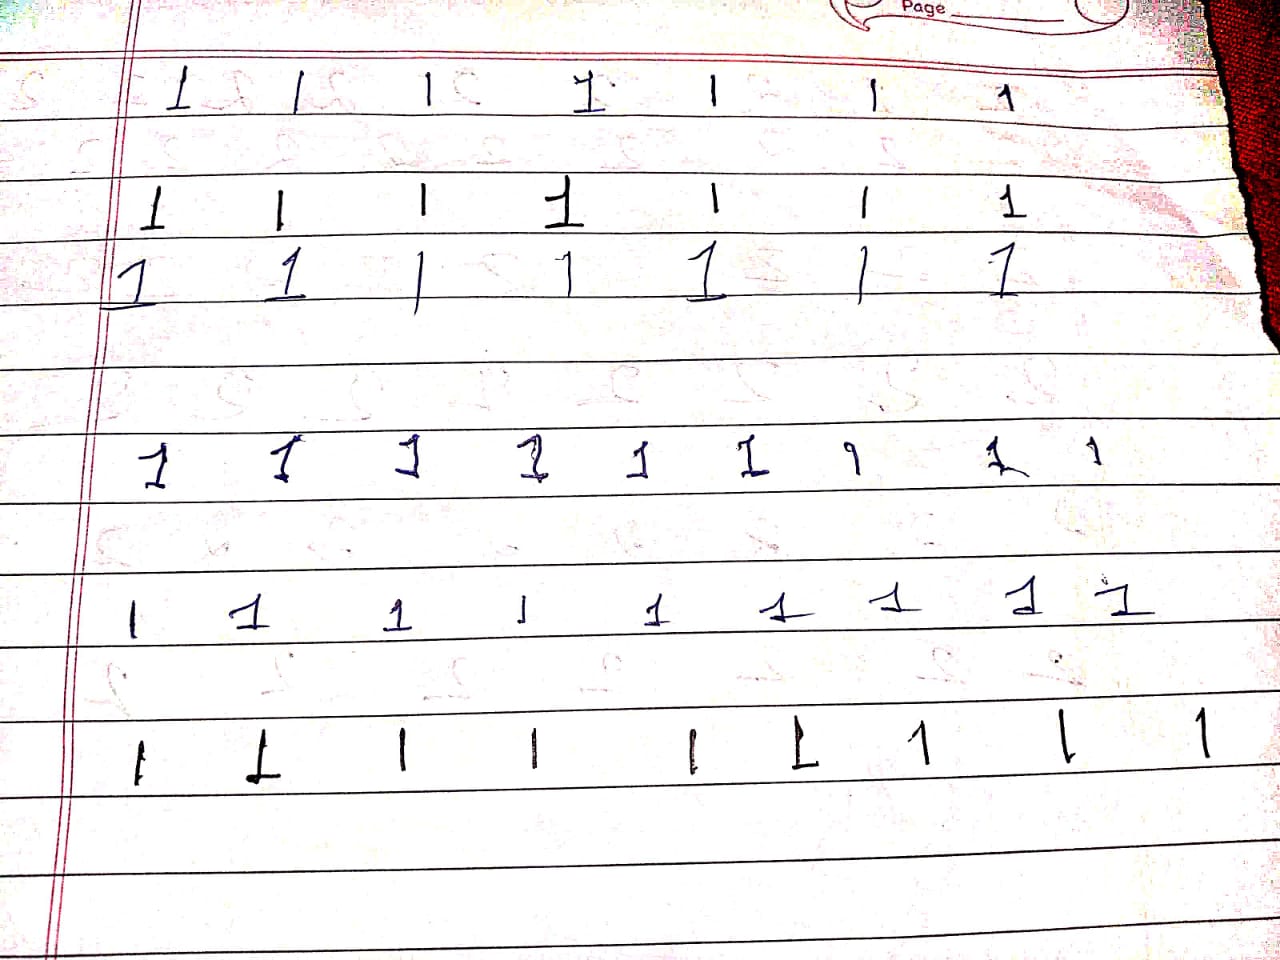 Page
1 1 1 1 1 1 1
1 1 1 1 1 1 1
1 1 1 1 1 1 1
1 1 1 1 1 1 1 1 1
1 1 1 1 1 1 1 1 1
1 1 1 1 1 1 1 1 1